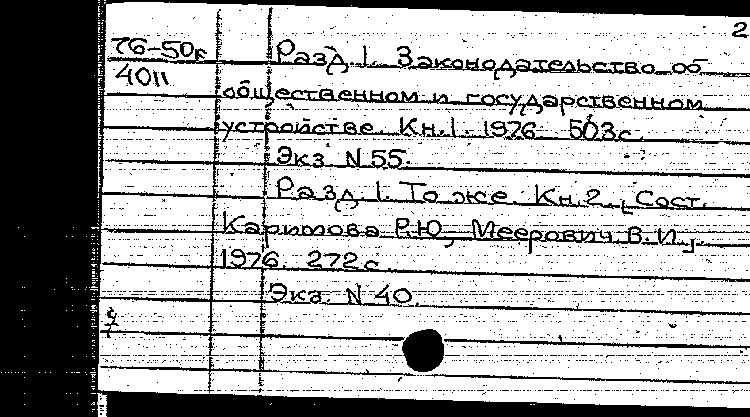 2
76-50к Разд. 1. Законодательство об
4011
общественном и государственном
устройстве. Кн. 1. 1976. 503 с.
Экз. N 55.
Разд. 1. То же. Кн. 2. [Сост.
Каримова Р.Ю., Меерович В.И.]
1976. 272 с.
Экз. N 40.